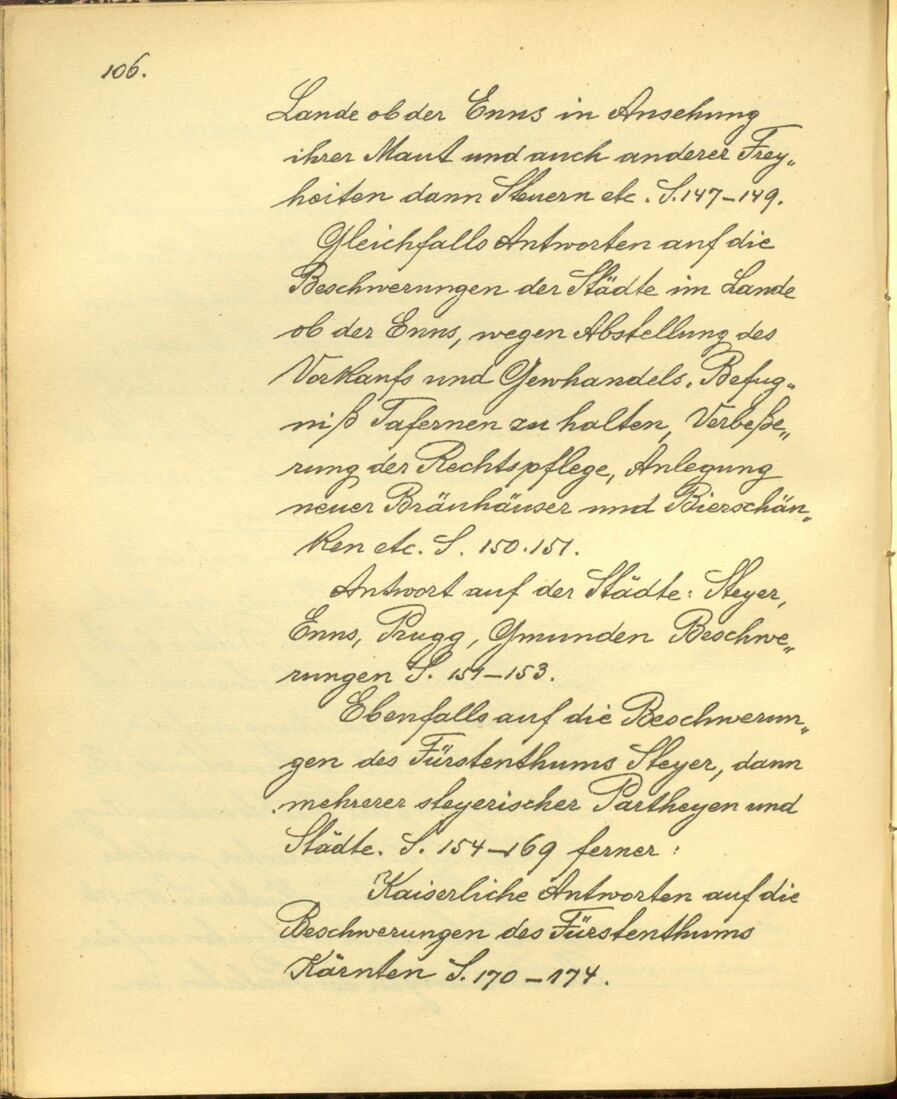 106.
Lande ob der Enns in Ansehung
ihrer Maut und auch anderer Frey„
heiten dann Steuern etc. S. 147–149.
Gleichfalls Antworten auf die
Beschwerungen der Städte im Lande
ob der Enns, wegen Abstellung des
Vorkaufs und Gewhandels. Befug„
niß Tafernen zu halten, Verbeße„
rung der Rechtspflege, Anlegung
neuer Bräuhäuser und Bierschän„
ken etc. S. 150.151.
Antwort auf der Städte: Steyer,
Enns, Prugg, Gmunden Beschwe„
rungen S. 151–153.
Ebenfalls auf die Beschwerun„
gen des Fürstenthums Steyer, dann
mehrerer steyerischer Partheyen und
Städte. S. 154–169 ferner:
Kaiserliche Antworten auf die
Beschwerungen des Fürstenthums
Kärnten S. 170–174.